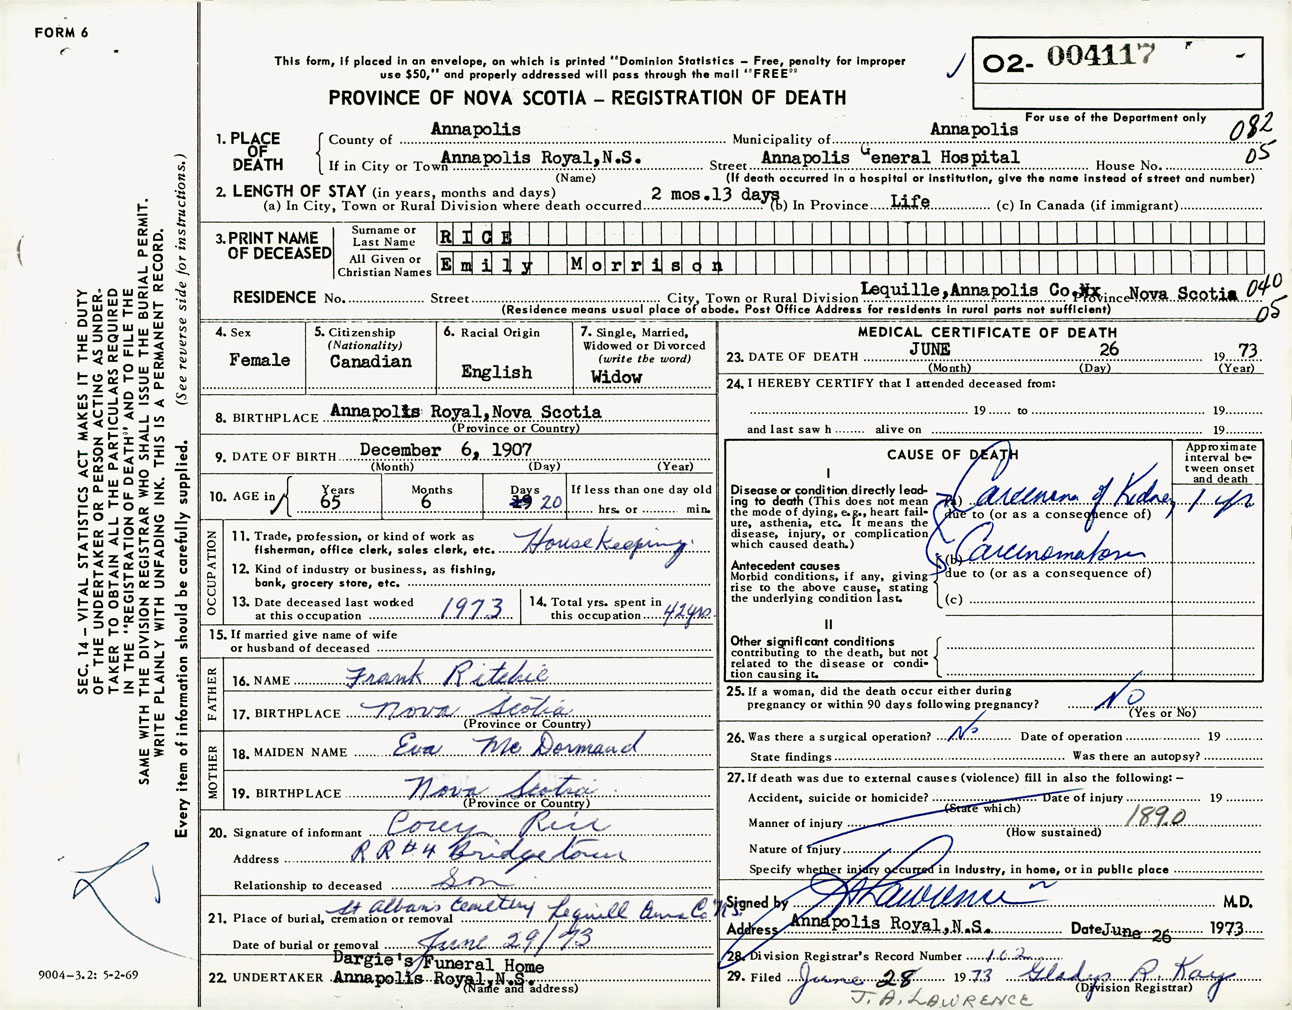 FORM 6
This form, if placed in an envelope, on which is printed "Dominion Statistics – Free, penalty for improper
use $50," and properly addressed will pass through the mail "FREE"
O2- 004117
PROVINCE OF NOVA SCOTIA – REGISTRATION OF DEATH
For use of the Department only
082
05
1. PLACE OF DEATH
County of Annapolis Municipality of Annapolis
If in City or Town Annapolis Royal,N.S. Street Annapolis General Hospital House No.
(Name) (If death occurred in a hospital or institution, give the name instead of street and number)
2. LENGTH OF STAY (in years, months and days)
(a) In City, Town or Rural Division where death occurred 2 mos.13 days (b) In Province Life (c) In Canada (if immigrant)
3. PRINT NAME OF DECEASED
Surname or Last Name RICE
All Given or Christian Names Emily Morrison
RESIDENCE No. Street City, Town or Rural Division Lequille,Annapolis Co. Province Nova Scotia 040
05
(Residence means usual place of abode. Post Office Address for residents in rural parts not sufficient)
4. Sex
Female
5. Citizenship
(Nationality)
Canadian
6. Racial Origin
English
7. Single, Married,
Widowed or Divorced
(write the word)
Widow
8. BIRTHPLACE Annapolis Royal,Nova Scotia
(Province or Country)
9. DATE OF BIRTH December 6, 1907
(Month) (Day) (Year)
10. AGE in
Years
65
Months
6
Days
19 20
If less than one day old
hrs. or min.
OCCUPATION
11. Trade, profession, or kind of work as
fisherman, office clerk, sales clerk, etc. Housekeeping
12. Kind of industry or business, as fishing,
bank, grocery store, etc.
13. Date deceased last worked
at this occupation 1973
14. Total yrs. spent in
this occupation 42yrs.
15. If married give name of wife
or husband of deceased
FATHER
16. NAME Frank Ritchie
17. BIRTHPLACE Nova Scotia
(Province or Country)
MOTHER
18. MAIDEN NAME Eva McDormand
19. BIRTHPLACE Nova Scotia
(Province or Country)
20. Signature of informant Corey Rice
Address RR#4 Bridgetown
Relationship to deceased Son
21. Place of burial, cremation or removal St Albans Cemetery Lequill Anna Co N.S.
Date of burial or removal June 29/73
22. UNDERTAKER Dargie's Funeral Home
Annapolis Royal,N.S.
(Name and address)
MEDICAL CERTIFICATE OF DEATH
23. DATE OF DEATH JUNE 26 1973
(Month) (Day) (Year)
24. I HEREBY CERTIFY that I attended deceased from:
19 to 19
and last saw h alive on 19
CAUSE OF DEATH
Approximate
interval be-
tween onset
and death
I
Disease or condition directly lead-
ing to death (This does not mean
the mode of dying, e.g., heart fail-
ure, asthenia, etc. It means the
disease, injury, or complication
which caused death.)
(a) Carcinoma of Kidney 1 yr
due to (or as a consequence of)
(b) Carcinomatosis
due to (or as a consequence of)
(c)
Antecedent causes
Morbid conditions, if any, giving
rise to the above cause, stating
the underlying condition last.
II
Other significant conditions
contributing to the death, but not
related to the disease or condi-
tion causing it.
25. If a woman, did the death occur either during
pregnancy or within 90 days following pregnancy? No
(Yes or No)
26. Was there a surgical operation? No Date of operation 19
State findings Was there an autopsy?
27. If death was due to external causes (violence) fill in also the following: –
Accident, suicide or homicide? Date of injury 19
(State which)
Manner of injury 1890
(How sustained)
Nature of Injury
Specify whether injury occurred in Industry, in home, or in public place
Signed by Lawrence M.D.
Address Annapolis Royal,N.S. Date June 26 1973
28. Division Registrar's Record Number 102
29. Filed June 28 1973 Gladys R. Kay
(Division Registrar)
J. A. LAWRENCE
SEC. 14 – VITAL STATISTICS ACT MAKES IT THE DUTY
OF THE UNDERTAKER OR PERSON ACTING AS UNDER-
TAKER TO OBTAIN ALL THE PARTICULARS REQUIRED
IN THE "REGISTRATION OF DEATH" AND TO FILE THE
SAME WITH THE DIVISION REGISTRAR WHO SHALL ISSUE THE BURIAL PERMIT.
WRITE PLAINLY WITH UNFADING INK. THIS IS A PERMANENT RECORD.
Every item of information should be carefully supplied. (See reverse side for instructions.)
9004–3.2: 5-2-69